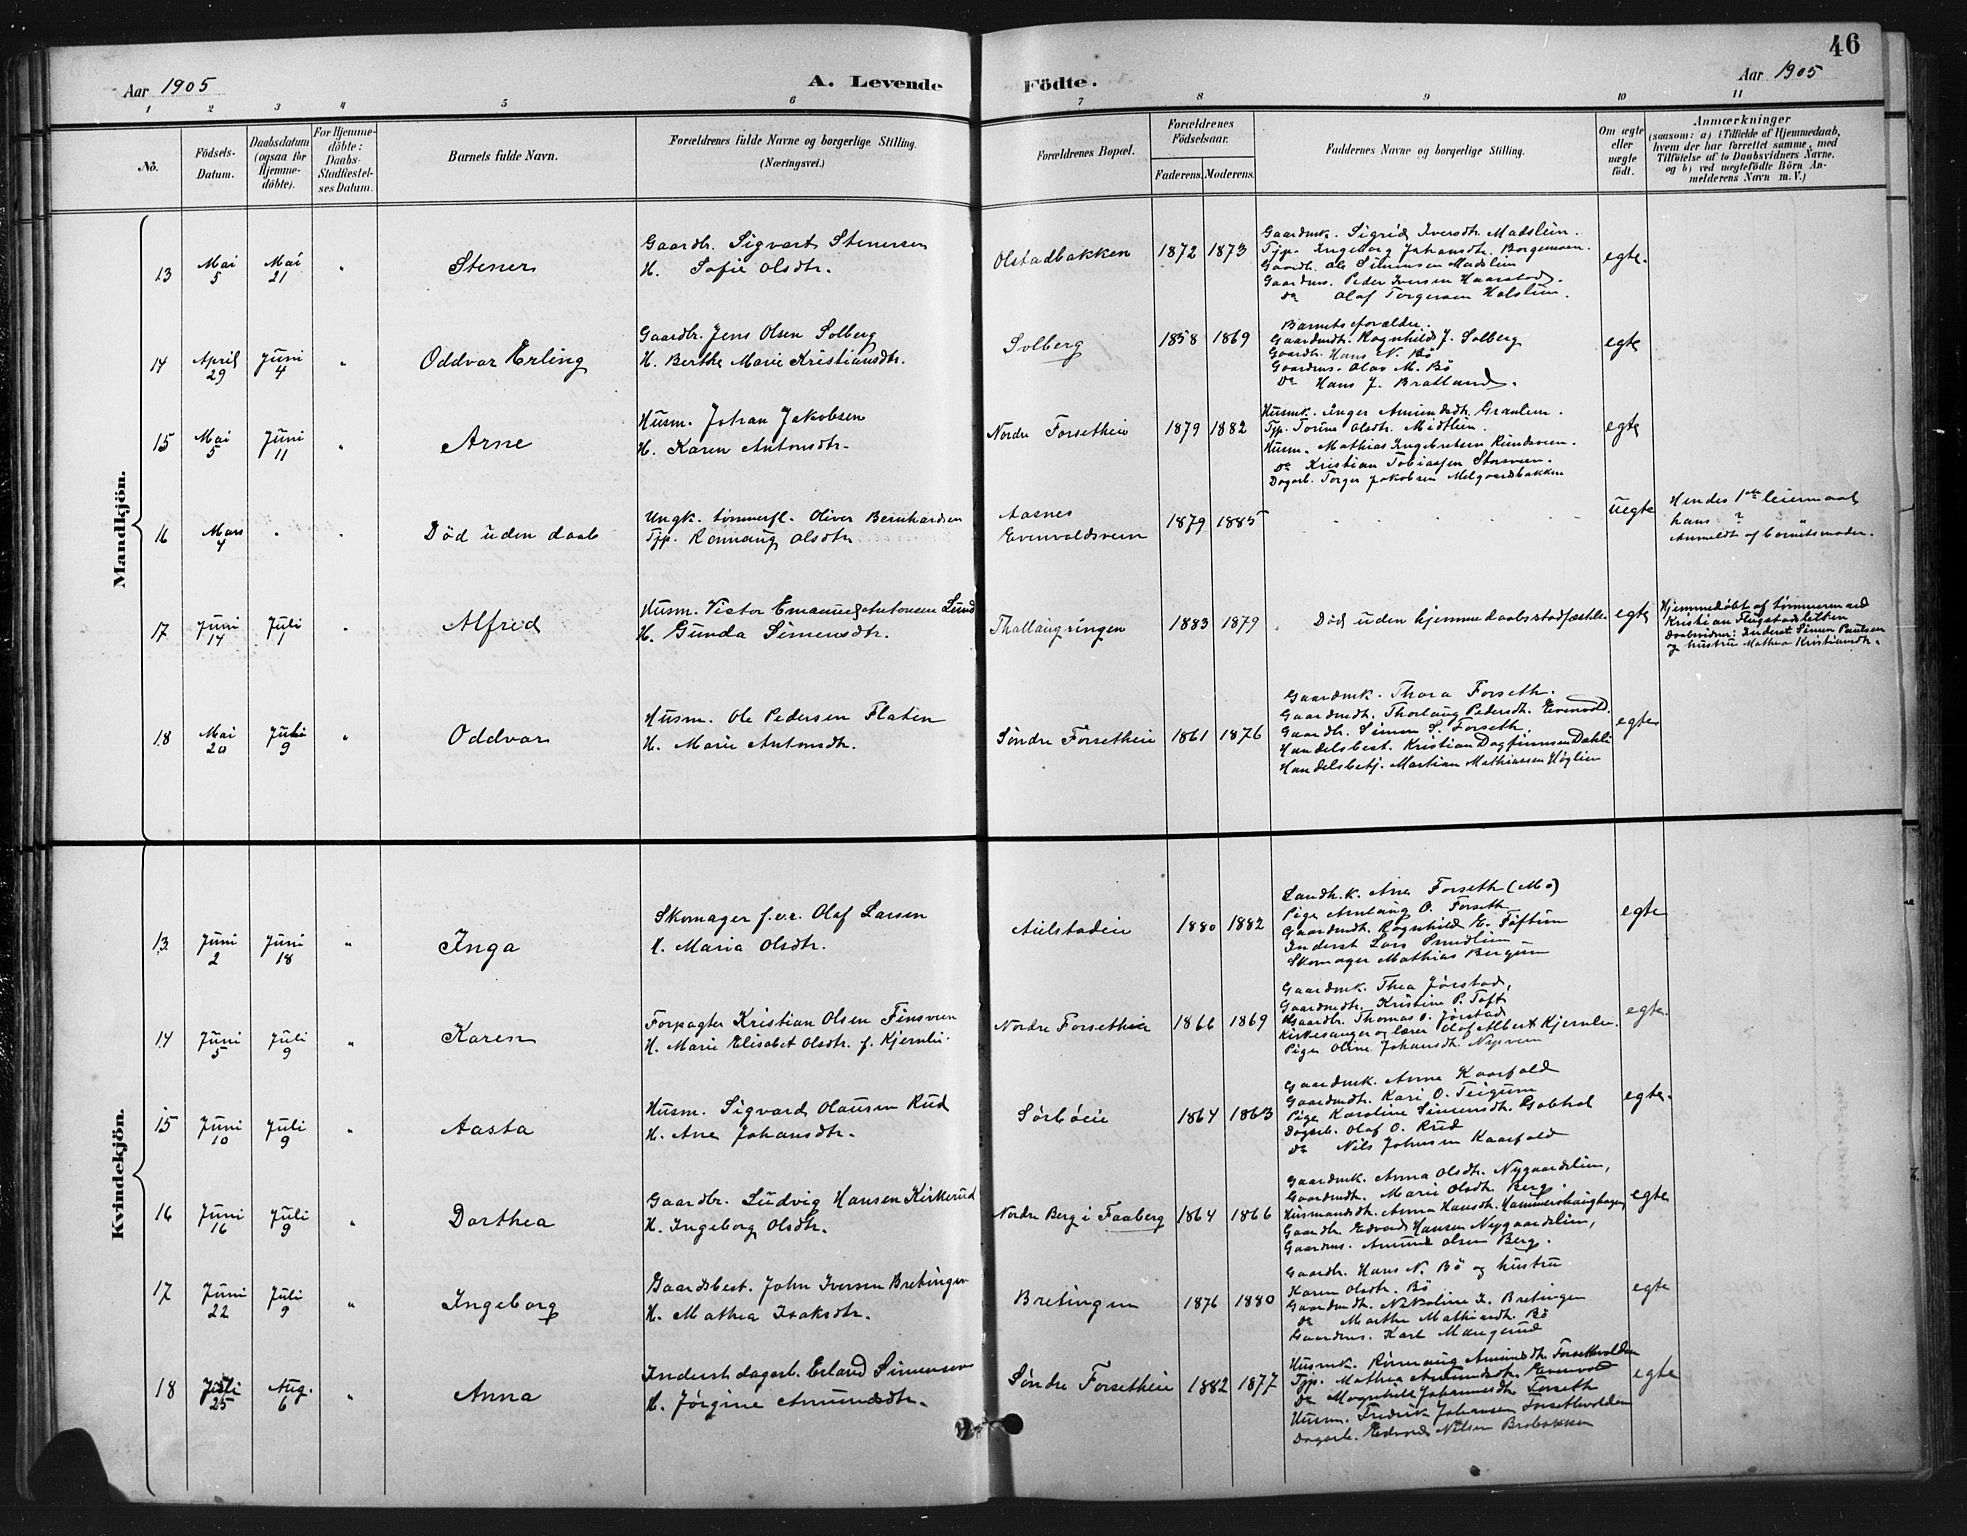 46
Aar 1905
A. Levende Födte.
Aar 1905
1 2 3 4 5 6 7 8 9 10 11
No.
Födsels-
Datum.
Daabsdatum
(ogsaa for
Hjemme-
döbte).
For Hjemme-
döbte:
Daabs-
Stadfæstel-
ses Datum.
Barnets fulde Navn.
Forældrenes fulde Navne og borgerlige Stilling.
(Næringsvei.)
Forældrenes Bopæl.
Forældrenes
Födselsaar.
Faderens. Moderens.
Faddernes Navne og borgerlige Stilling.
Om ægte
eller
uægte
födt.
Anmærkninger
(saasom: a) i Tilfælde af Hjemmedaab,
hvem der har forrettet samme, med
Tilföielse af to Daabsvidners Navne,
og b) ved uægtefödte Börn An-
melderens Navn m. V.)
Mandkjön.
13
Mai
5
Mai
21
"
Stener
Gaardbr. Sigvart Stenersen
H. Sofie Olsdtr.
Olstadbakken
1872 1873
Gaardmk. Sigrid Iversdtr. Madslien.
Tjp. Ingeborg Johansdtr. Borgemoen.
Gaardb. Ole Simensen Madslien
Gaardms. Peder Iversen Haarstad.
Do Olaf Torgersen Holslien.
egte.
14
April
29
Juni
4
"
Oddvar Erling
Gaardbr. Jens Olsen Solberg
H. Berthe Marie Kristiansdtr.
Solberg
1858 1869
Barnets forældre.
Gaardmdt. Ragnhild J. Solberg
Gaardbr. Hans N. Bö
Gaardms. Olav M. Bö
Do Hans J. Bratland.
egte
15
Mai
5
Juni
11
"
Arne
Husm. Johan Jakobsen
H. Karen Antonsdtr.
Nordre Forsetheie
1879 1882
Husmk. Inger Amundsdtr. Granlien.
Tjp. Torine Olsdtr. Midtlien.
Husm. Mathias Ingebretsen Rundsveen.
Do Kristian Tobiassen Storsveen.
Dagarb. Torger Jakobsen Melgaardsbakken
egte
16
Mars
4
"
"
Död uden daab
Ungk. tömmerfl. Oliver Bernhardsen
Tjp. Rönnaug Olsdtr
Aasnes
Evenvoldsveen
1879 1885
uegte
Hendes 1ste leiermaal
hans ? "
Anmeldt af barnets moder.
17
Juni
14
Juli
1
"
Alfred
Husm. Victor Emanuel Antonsen Lund
H. Gunda Simensdtr.
Thallaugringen
1883 1879
Död uden hjemmedaabsstadfæstelse
egte
Hjemmedöbt af tömmermand
Kristian Flugstadstelten
Daabsvidner: Inderst Simen Paulsen
og hustru Mathea Kristiansdtr.
18
Mai
20
Juli
9
"
Oddvar
Husm. Ole Pedersen Flaten
H. Marie Antonsdtr.
Söndre Forsetheie
1861 1876
Gaardmk. Thora Forseth.
Gaardmdtr. Thorlaug Pedersdtr. Evenvold.
Gaardbr. Simen S. Forseth
Handelsbest. Kristian Dagfinnsen Dahle
Handelsbetj. Martian Mathiassen Höglien
egte
Kvindekjön.
13
Juni
2
Juni
18
"
Inga
Skomager f.v.c. Olaf Larsen
H. Maria Olsdtr.
Aulstadeie
1880 1882
Landh.k. Ane Forseth (Mo)
Pige Amlaug O. Forseth
Gaardmdt. Ragnhild E. Töftum
Inderst Lars Smedlien
Skomager Mathias Bergum
egte
14
Juni
5
Juli
9
"
Karen
Forpagter Kristian Olsen Finsveen
H. Marie Elisabet Olsdtr. f. Kjernlie.
Nordre Forsetheie
1866 1869
Gaardmk. Thea Jörstad,
Gaardmdtr. Kristine P. Toft
Gaardbr. Thomas O. Jörstad
Kirkesanger og lærer Olaf Albert Kjernlie.
Pige Oline Johansdtr. Nysveen
egte.
15
Juni
10
Juli
9
"
Aasta
Husm. Sigvard Olausen Rud
H. Ane Johansdtr.
Sörböeie
1864 1863
Gaardmk. Anne Kaarfald
Gaardmdt. Kari O. Teigum
Pige Karoline Simensdtr.
Dagarb. Olaf O. Rud
Do Nils Johnsen Kaarfald
egte.
16
Juni
16
Juli
9
"
Dorthea
Gaardbr. Ludvig Hansen Kirkerud
H. Ingeborg Olsdtr.
Nordre Berg i Faaberg
1864 1866
Gaardmk. Anna Olsdtr. Nygaardslien,
Gaardmdt. Marie Olsdtr. Berg.
Husmandsdt. Anna Hansdtr. Hammershaughagen,
Gaardbr. Edvard Hansen Nygaardslien,
Gaardms. Amund Olsen Berg.
egte
17
Juni
22
Juli
9
"
Ingeborg
Gaardsbest. John Iversen Bretingen
H. Mathea Isaksdtr.
Bretingen
1876 1880
Gaardbr. Hans N. Bö og hustru
Karen Olsdtr. Bö
Gaardmdt. Nikoline I. Bretingen
Do Marthe Mathiasdtr. Bö
Gaardms. Karl Mangerud
egte
18
Juli
25
Aug.
6
"
Anna
Inderst dagarb. Erland Simensen
H. Jörgine Amundsdtr.
Söndre Forsetheie
1882 1877
Husmk. Rönnaug Amundsdtr. Forsethvolden
Tjp. Mathea Amundsdtr. Evenvold
Do Magnhild Johannesdtr. Forseth
Husm. Fredrik Johansen Forsethvolden
Dagarb. Edvard Nilsen Brobakken
egte